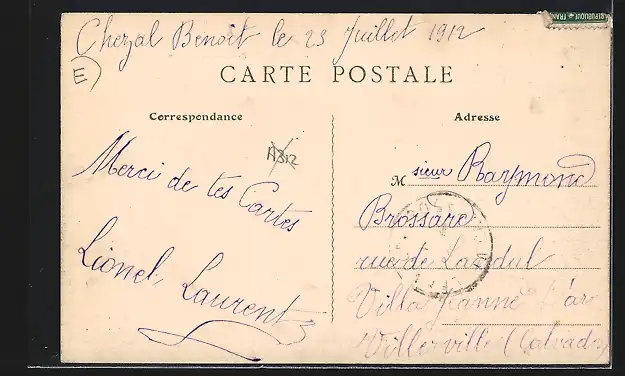 Chezal Benoit le 23 Juillet 1912
E
CARTE POSTALE
Correspondance
Adresse
Merci de tes Cartes
Lionel Laurent
M sieur Raymond
Brossard
rue de
Villa Jeanne d'arc
Villerville (Calvados)